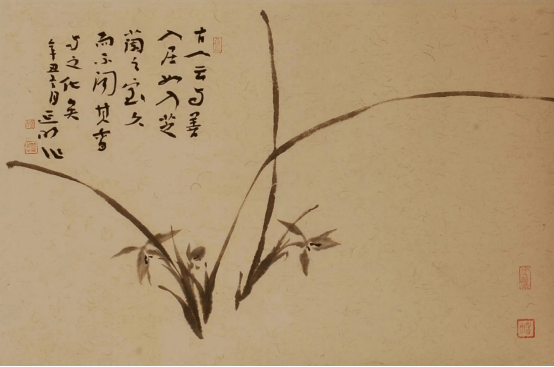 古人云与善
人居如入芝
蘭之室久
而不闻其香
与之化矣
辛丑六月